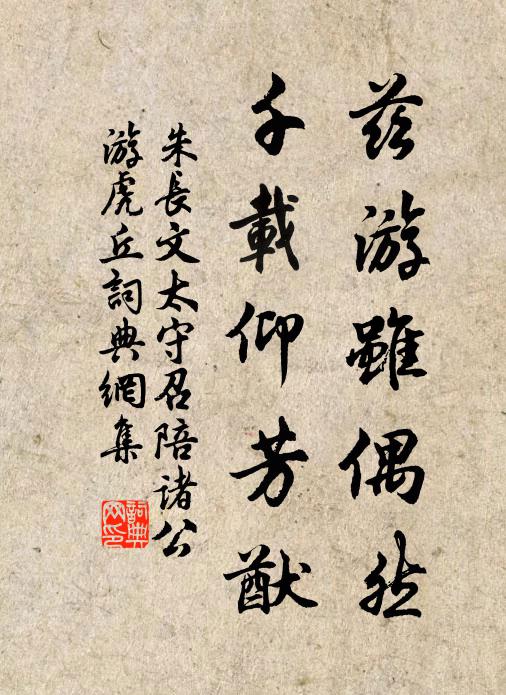 茲游雖偶然
千載仰芳猷
朱長文太守召陪諸公
游虎丘詞典網集
詞典網印